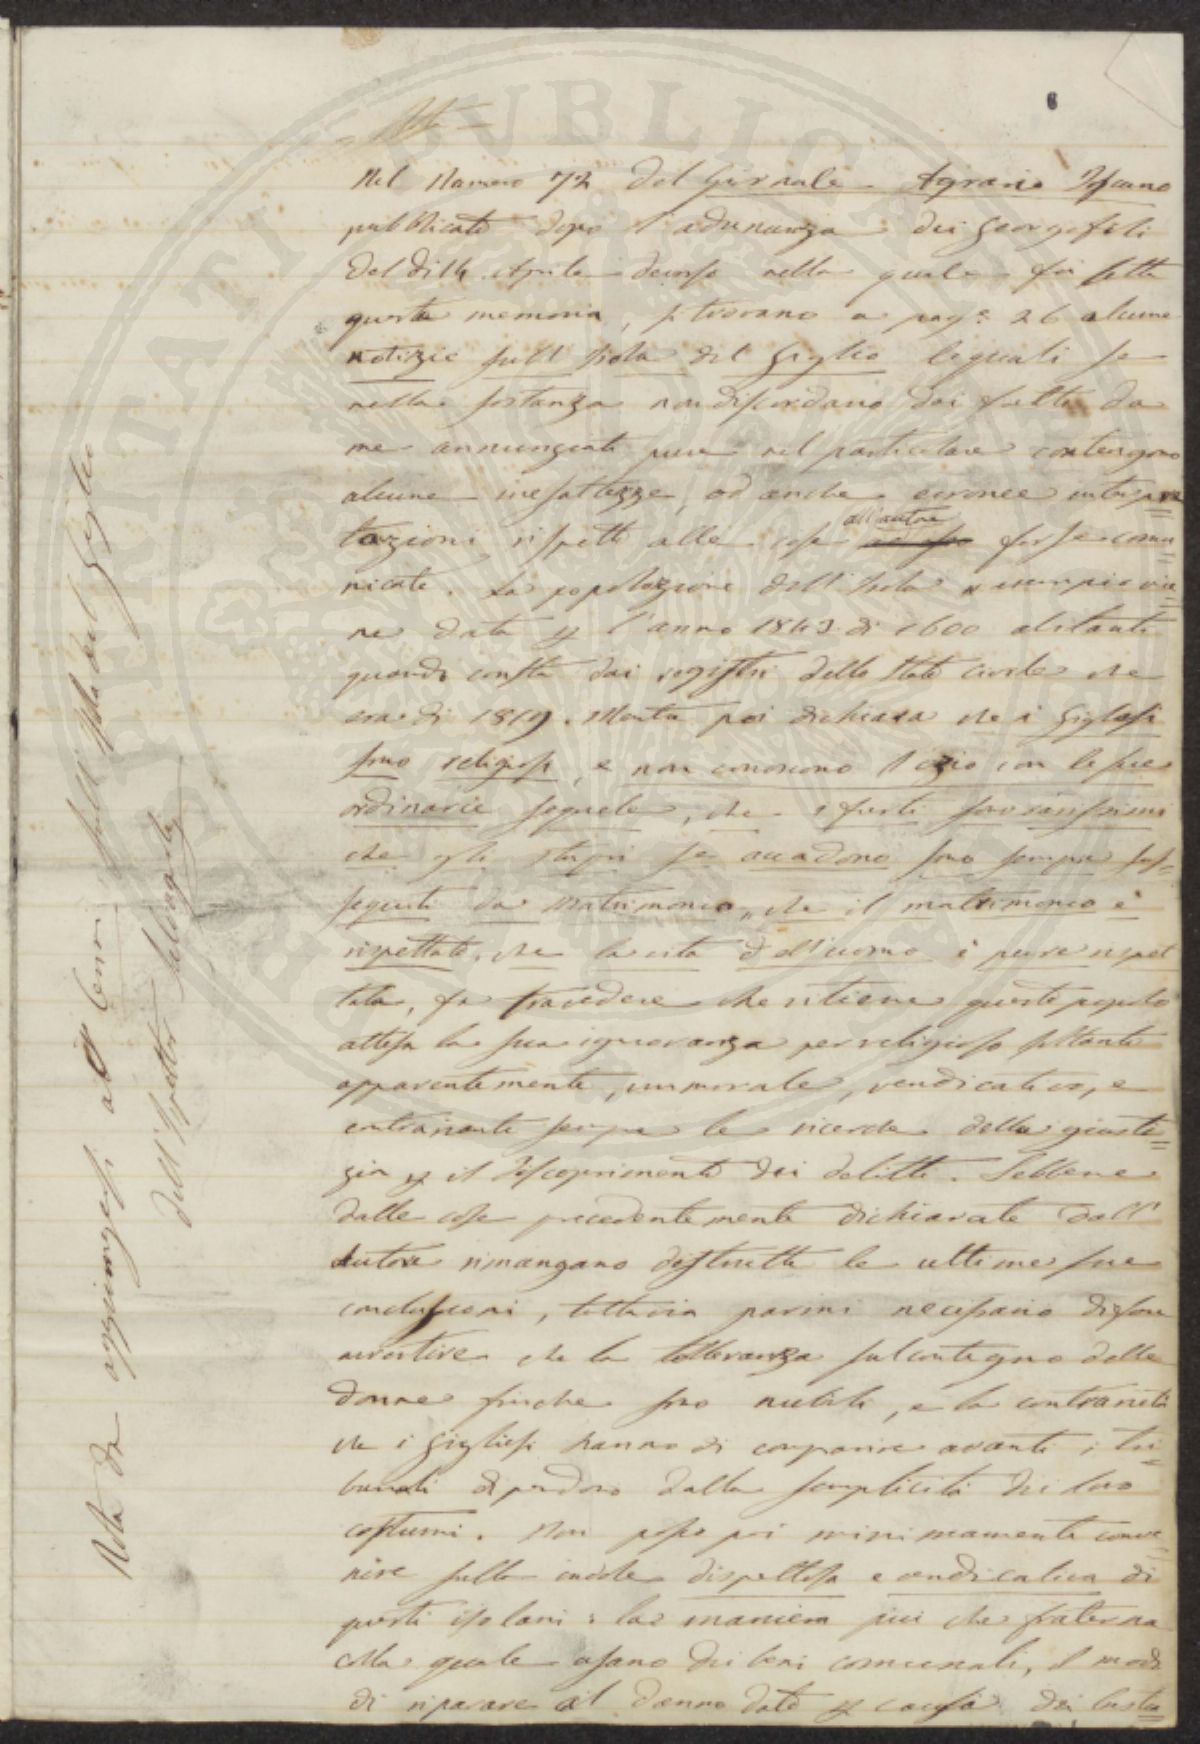 Nel Numero 72 del Giornale Agrario Toscano
pubblicato dopo l'adunanza dei Georgofili
del dì 14 Aprile decorso nella quale fu letta
questa memoria, si trovano a pag. 26 alcune
notizie sull'Isola del Giglio le quali se
nella sostanza non discordano dai fatti da
me annunziati pure nel particolare contengono
alcune inesattezze, ed anche erronee interpre=
tazioni rispetto alle cose all'autore forse comu=
nicate. La popolazione dell'Isola p. esempio vie=
ne data p. l'anno 1843 di 1600 abitanti
quando consta dai registri dello stato civile che
era di 1819. Mentre poi dichiara che i Gigliesi
sono religiosi, e non conoscono l'ozio con le sue
ordinarie sequele, che i furti sono rarissimi
che gli stupri se accadono sono sempre sus=
seguiti da matrimonio, che il matrimonio è
rispettato, che la vita dell'uomo è pure rispet
tata, fa travedere che ritiene questo popolo
attesa la sua ignoranza per religioso soltanto
apparentemente, immorale, vendicativo, e
contrariante sempre le ricerche della giusti=
zia p. il discoprimento dei delitti. Sebbene
dalle cose precedentemente dichiarate dall'
Autore rimangano distrutte le ultime sue
conclusioni, tuttavia parmi necessario di fare
avvertire che la tolleranza sul contegno delle
donne finche sono nubili, e la contrarietà
che i Gigliesi hanno di comparire avanti i tri=
bunali dipendono dalla semplicità dei loro
costumi. Non posso poi minimamente conve=
nire sulla indole dispettosa e vendicativa di
questi isolani: la maniera più che fraterna
colla quale usano dei beni comunali, il modo
di riparare al danno dato p. causa dei bestia
Nota da aggiungersi ai Cenni sull'Isola del Giglio
dell'Ispettor